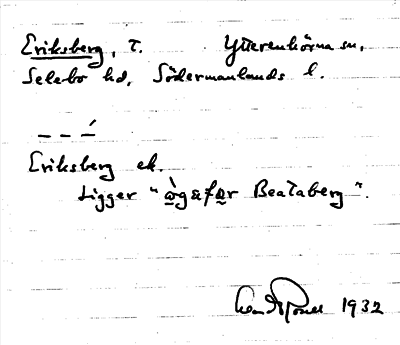 Eriksberg, T. Ytterenhörna sn.
Selebo hd. Södermanlands l.
_ _ ´_
Eriksberg ek.
Ligger "ò̱gafa̱r Beataberg".
1932